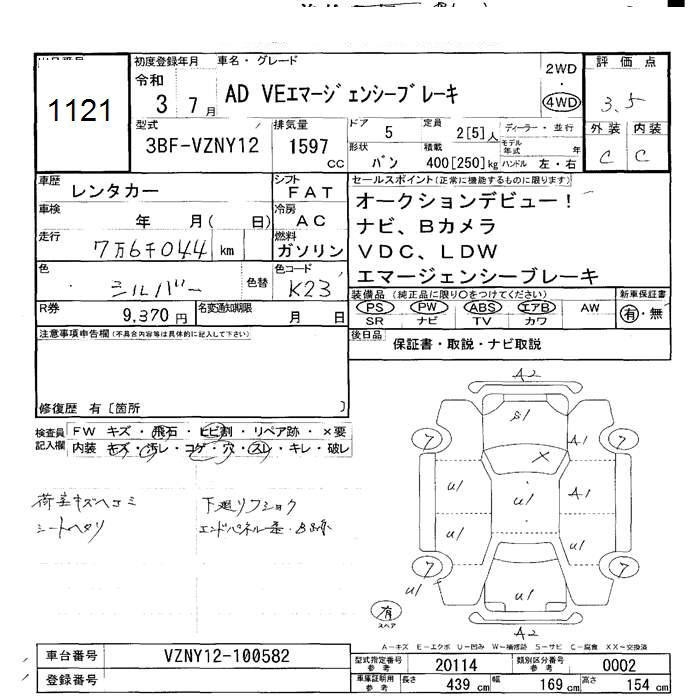 初度登録年月 車名・グレード
令和
3 7月
AD VEエマージェンシーブレーキ
2WD
・
4WD
評価点
3.5
外装 内装
C C
1121
型式
3BF-VZNY12
排気量
1597
CC
ドア 5 定員 2[5]人
ディーラー・並行
形状 バン 積載 400[250]kg
モデル年式 年
ハンドル 左・右
車歴 レンタカー
シフト FAT
車検 年 月( 日)
冷房 AC
走行 7万6千044 km
燃料 ガソリン
色 シルバー 色替
色コード K23
R券 9,370円
名変通知期限 月 日
セールスポイント(正常に機能するものに限ります)
オークションデビュー!
ナビ、Bカメラ
VDC、LDW
エマージェンシーブレーキ
装備品(純正品に限り○をつけてください)
PS PW ABS エアB AW
SR ナビ TV カワ
新車保証書
有・無
後日品 保証書・取説・ナビ取説
注意事項申告欄(不具合内容等は具体的に記入して下さい)
修復歴 有〔箇所 〕
検査員記入欄
FW キズ・飛石・ヒビ割・リペア跡・×要
内装 キズ・汚れ・コゲ・穴・スレ・キレ・破レ
荷室キズヘコミ
シートヘタリ
下廻りフショク
A2
S1
7
7
A1
×
U1
U1
A1
U1
U1
7
7
U1
U1
有
スペア
A2
A-キズ E-エクボ U-凹み W-補修跡 S-サビ C-腐食 XX-交換済
車台番号 VZNY12-100582
登録番号
型式指定番号 参考 20114
類別区分番号 参考 0002
車庫証明用 参考 長さ 439cm 幅 169cm 高さ 154cm